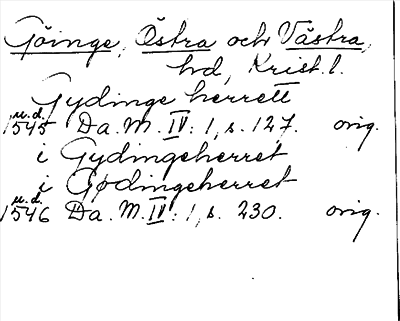 Göinge, Östra och Västra,
hd, Krist. l.
Gydinge herrett
u.d.
1545 Da. M. IV: 1, s. 127. orig.
i Gydingeherret
i Gødingeherret
u.d.
1546 Da. M. IV: 1, s. 230. orig.